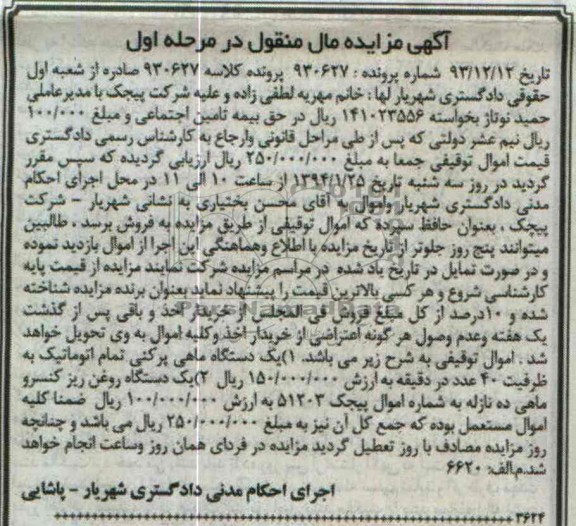 آگهی مزایده مال منقول در مرحله اول
تاریخ ۹۳/۱۲/۱۲ شماره پرونده : ۹۳۰۶۲۷ پرونده کلاسه ۹۳۰۶۲۷ صادره از شعبه اول
حقوقی دادگستری شهریار لها : خانم مهریه لطفی زاده و علیه شرکت پیچک با مدیرعاملی
حمید نوتاژ بخواسته ۱۴۱۰۲۳۵۵۶ ریال در حق بیمه تامین اجتماعی و مبلغ ۱۰۰/۰۰۰
ریال نیم عشر دولتی که پس از طی مراحل قانونی وارجاع به کارشناس رسمی دادگستری
قیمت اموال توقیفی جمعا به مبلغ ۲۵۰/۰۰۰/۰۰۰ ریال ارزیابی گردیده که سپس مقرر
گردید در روز سه شنبه تاریخ ۱۳۹۴/۱/۲۵ از ساعت ۱۰ الی ۱۱ در محل اجرای احکام
مدنی دادگستری شهریار واموال به آقای محسن بختیاری به نشانی شهریار – شرکت
پیچک ، بعنوان حافظ سپرده که اموال توقیفی از طریق مزایده به فروش برسد ، طالبین
میتوانند پنج روز جلوتر از تاریخ مزایده با اطلاع وهماهنگی این اجرا از اموال بازدید نموده
و در صورت تمایل در تاریخ یاد شده در مراسم مزایده شرکت نمایند مزایده از قیمت پایه
کارشناسی شروع و هر کسی بالاترین قیمت را پیشنهاد نماید بعنوان برنده مزایده شناخته
شده و ۱۰درصد از کل مبلغ فروش فی المجلس از خریدار اخذ و باقی پس از گذشت
یک هفته وعدم وصول هر گونه اعتراضی از خریدار اخذ وکلیه اموال به وی تحویل خواهد
شد . اموال توقیفی به شرح زیر می باشد. ۱)یک دستگاه ماهی پرکنی تمام اتوماتیک به
ظرفیت ۴۰ عدد در دقیقه به ارزش ۱۵۰/۰۰۰/۰۰۰ ریال ۲)یک دستگاه روغن ریز کنسرو
ماهی ده نازله به شماره اموال پیچک ۵۱۲۰۳ به ارزش ۱۰۰/۰۰۰/۰۰۰ ریال ضمنا کلیه
اموال مستعمل بوده که جمع کل آن نیز به مبلغ ۲۵۰/۰۰۰/۰۰۰ ریال می باشد و چنانچه
روز مزایده مصادف با روز تعطیل گردید مزایده در فردای همان روز وساعت انجام خواهد
شد.م‌الف: ۶۶۲۰
اجرای احکام مدنی دادگستری شهریار - پاشایی
۳۶۲۴